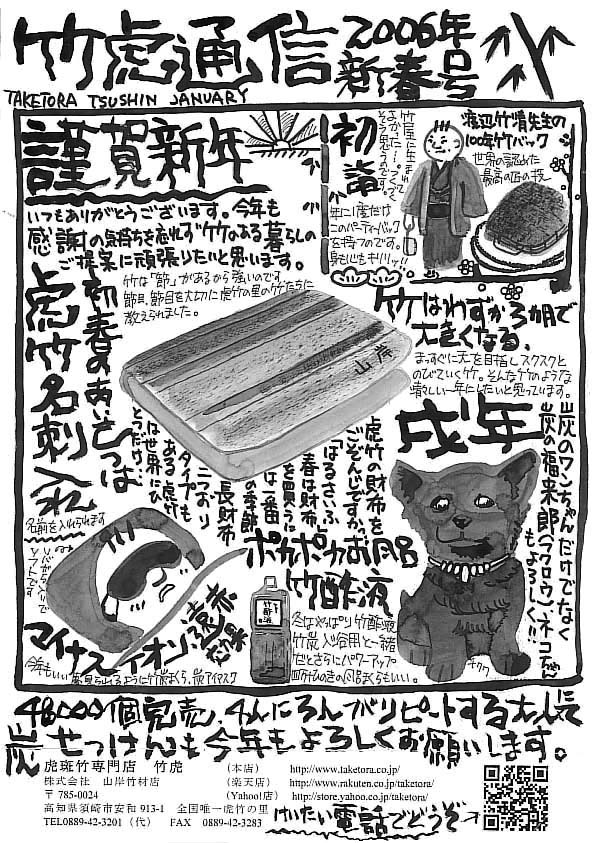 竹虎通信
2006年
新春号
TAKETORA TSUSHIN JANUARY
謹賀新年
いつもありがとうございます。今年も
感謝の気持ちを忘れず竹のある暮らしの
ご提案に頑張りたいと思います。
初詣
竹屋に生まれて
よかった…
そう思うのです。
年に1度だけ
このパーティーバック
を持つのです。
渡辺竹清先生の
100年竹バック
世界の認めた
最高の匠の技
竹は「節」があるから強いのです。
節目、節目を大切に虎竹の里の竹たちに
教えられました。
初春のあいさつは
虎竹名刺入れ
名前を入れられます
山岸
竹はわずか3ヵ月で
大きくなる。
まっすぐに天を目指しスクスクと
のびていく竹。そんな竹のような
楽しい一年にしたいと思っています。
虎竹の財布を
ごぞんじですか。
「はるさいふ」
春は財布
を買うに
は一番
の季節
二つおり
タイプも
ある虎竹
長財布
は世界にひ
とつだけ!
戌年
炭のワンちゃんだけでなく
炭の福来郎(フクロウ)、ネコちゃん
もよろしく!!
ポカポカお風呂
竹酢液
冬はやっぱり竹酢液
竹炭入浴用と一緒
だとさらにパワーアップ
マイナスイオン
遠赤効果
48000個完売、4人に3人がリピートする大人気
炭せっけんも今年もよろしくお願いします。
虎斑竹専門店 竹虎
(本店) http://www.taketora.co.jp/
株式会社 山岸竹材店
(楽天店) http://www.rakuten.co.jp/taketora/
〒785-0024
(Yahoo!店) http://store.yahoo.co.jp/taketora/
高知県須崎市安和 913-1 全国唯一虎竹の里
TEL0889-42-3201(代) FAX 0889-42-3283
けいたい電話でどうぞ